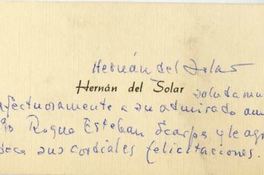 Hernán del Solar
Hernán del Solar saluda muy
afectuosamente a su admirado ami
go Roque Esteban Scarpa y le agra
dece sus cordiales felicitaciones.